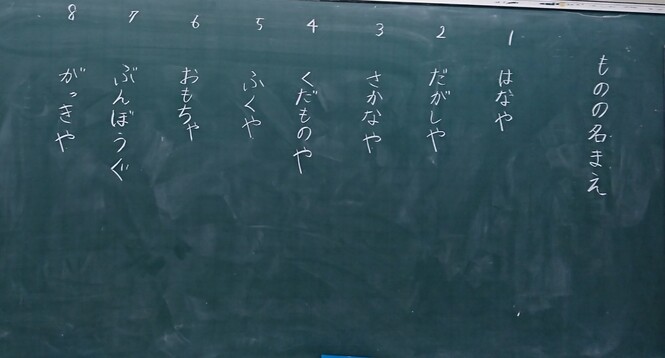 ものの名まえ
1 はなや
2 だがしや
3 さかなや
4 くだものや
5 ふくや
6 おもちゃ
7 ぶんぼうぐ
8 がっきや